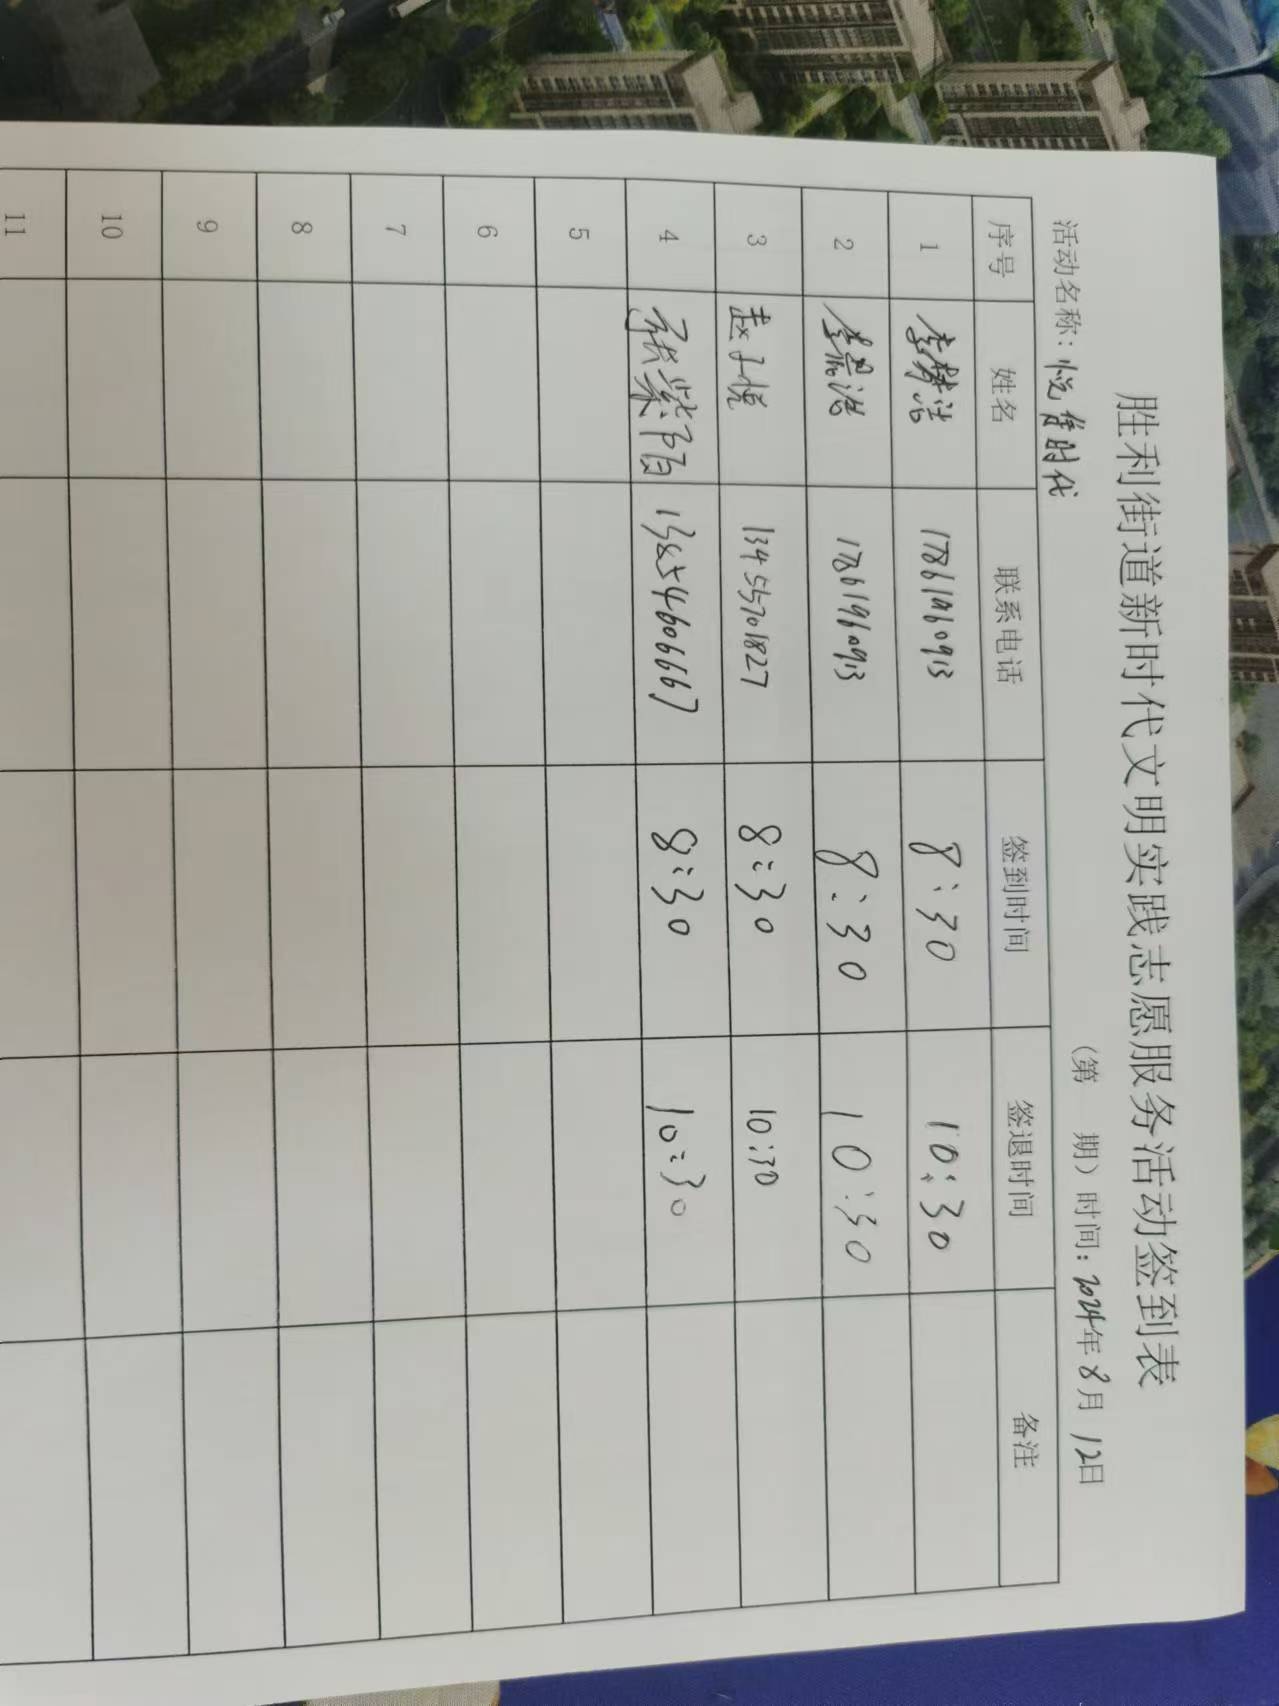 胜利街道新时代文明实践志愿服务活动签到表
活动名称：悦隽时代 （第 期）时间：2024年8月12日
序号 姓名 联系电话 签到时间 签退时间 备注
1 李梦洁 17861960913 8:30 10:30
2 李晨浩 17861960913 8:30 10:30
3 赵子悦 13455701827 8:30 10:30
4 张紫阳 13854606667 8:30 10:30
5
6
7
8
9
10
11